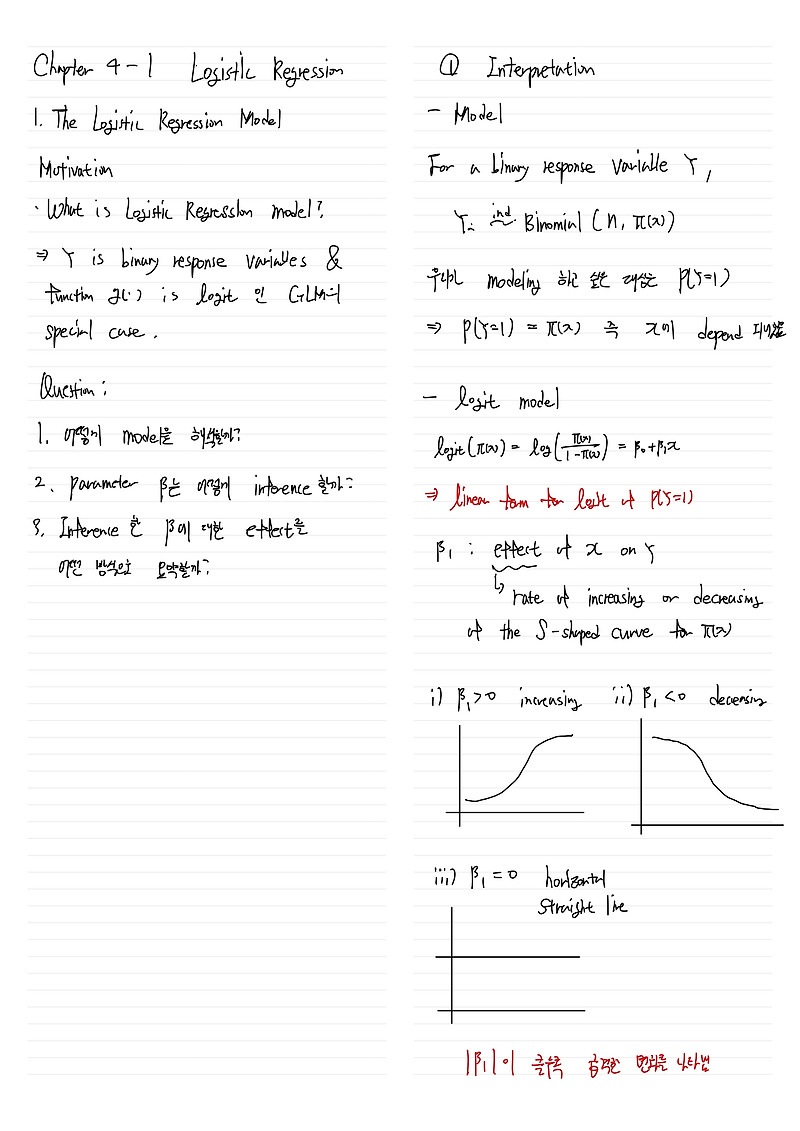 Chapter 4-1 Logistic Regression
1. The Logistic Regression Model
Motivation
· What is Logistic Regression model?
⇒ Y is binary response variables &
function g(·) is logit 인 GLM의
special case.
Question:
1. 어떻게 model을 해석할까?
2. Parameter β는 어떻게 inference 할까?
3. Inference 한 β에 대한 effect를
어떤 방식으로 요약할까?
① Interpretation
- Model
For a binary response variable Y,
Yᵢ ind~ Binomial (n, π(x))
우리가 modeling 하고 싶은 대상은 P(Y=1)
⇒ P(Y=1) = π(x) 즉 x에 depend
- logit model
logit(π(x)) = log(π(x)/(1-π(x))) = β₀+β₁x
⇒ linear form for logit of P(Y=1)
β₁ : effect of x on Y
↳ rate of increasing or decreasing
of the S-shaped curve for π(x)
i) β₁>0 increasing
ii) β₁<0 decreasing
iii) β₁=0 horizontal
straight line
|β₁|이 클수록 급격한 변화를 나타냄